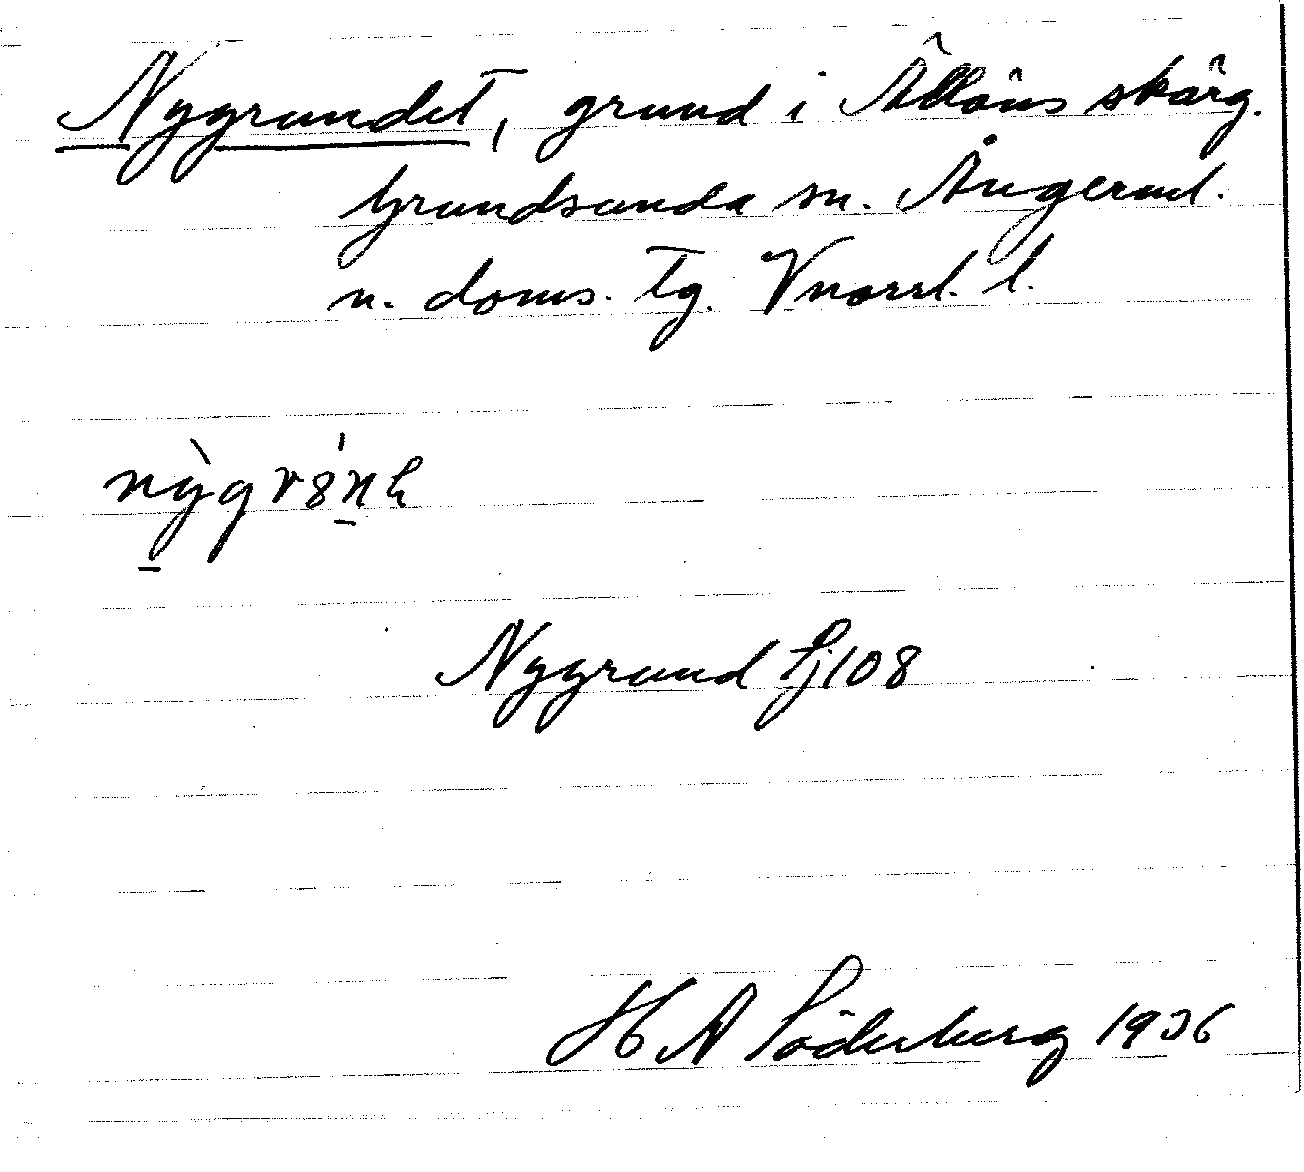 Nygrundet, grund i Ällöns skärg.
Grundsunda sn. Ångerml.
n. doms. tg. Vnorrl. l.
nỳgrs̍nh
Nygrund Sj108
H A Söderberg 1936